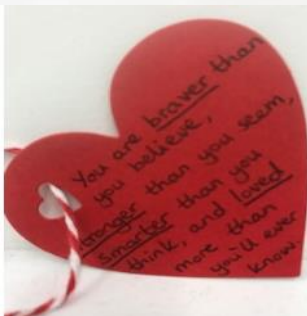 You are braver than
you believe,
stronger than you seem,
smarter than you
think, and loved
more than
you'll ever
know